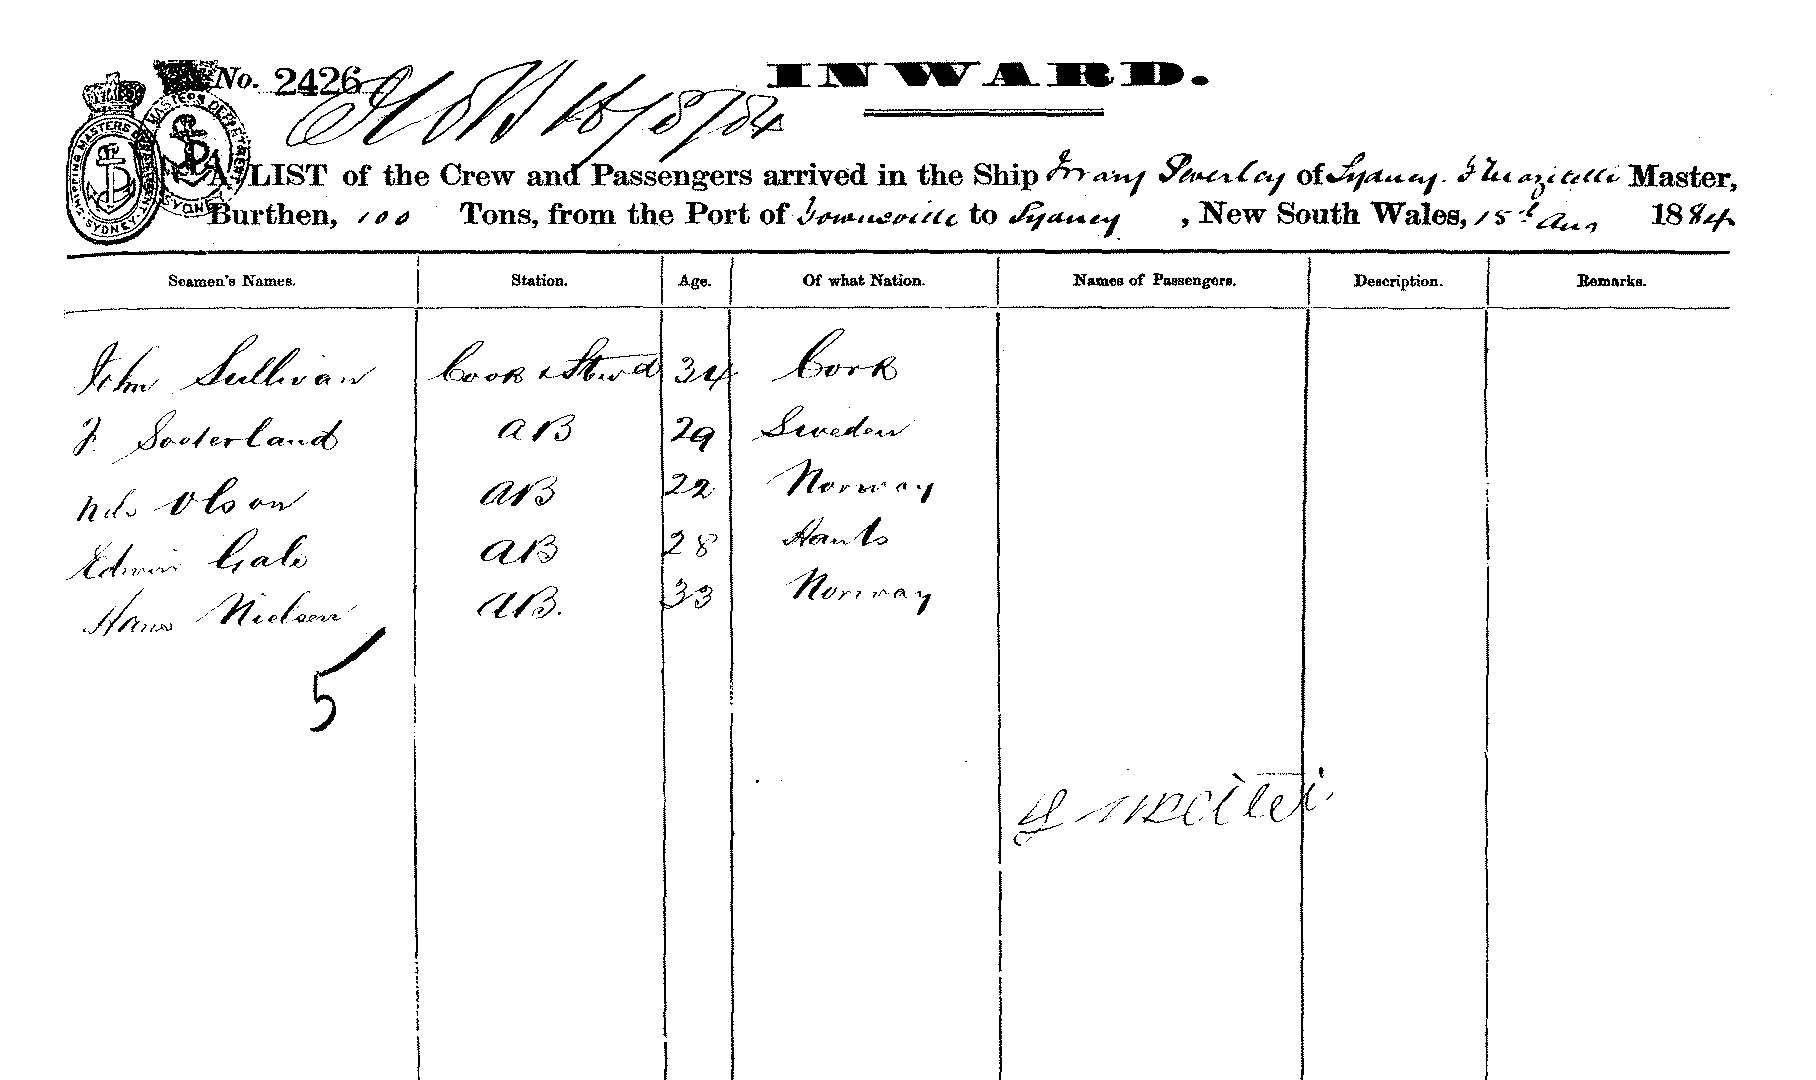 No. 2426
INWARD.
18/8/84
A LIST of the Crew and Passengers arrived in the Ship Mary Peverley of Sydney. Master,
Burthen, 100 Tons, from the Port of Townsville to Sydney, New South Wales, 15th Aug 1884
Seamen's Names. Station. Age. Of what Nation. Names of Passengers. Description. Remarks.
John Sullivan Cook & Stewd 34 Cork
J. Soderland AB 29 Sweden
Nils Olson AB 22 Norway
Edwin Gale AB 28 Hants
Hans Nielsen AB. 33 Norway
5